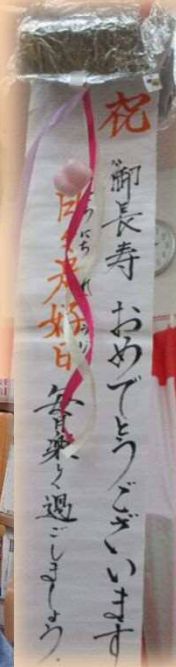 祝
御長寿 おめでとうございます
日々是好日
毎日楽しく過ごしましょう